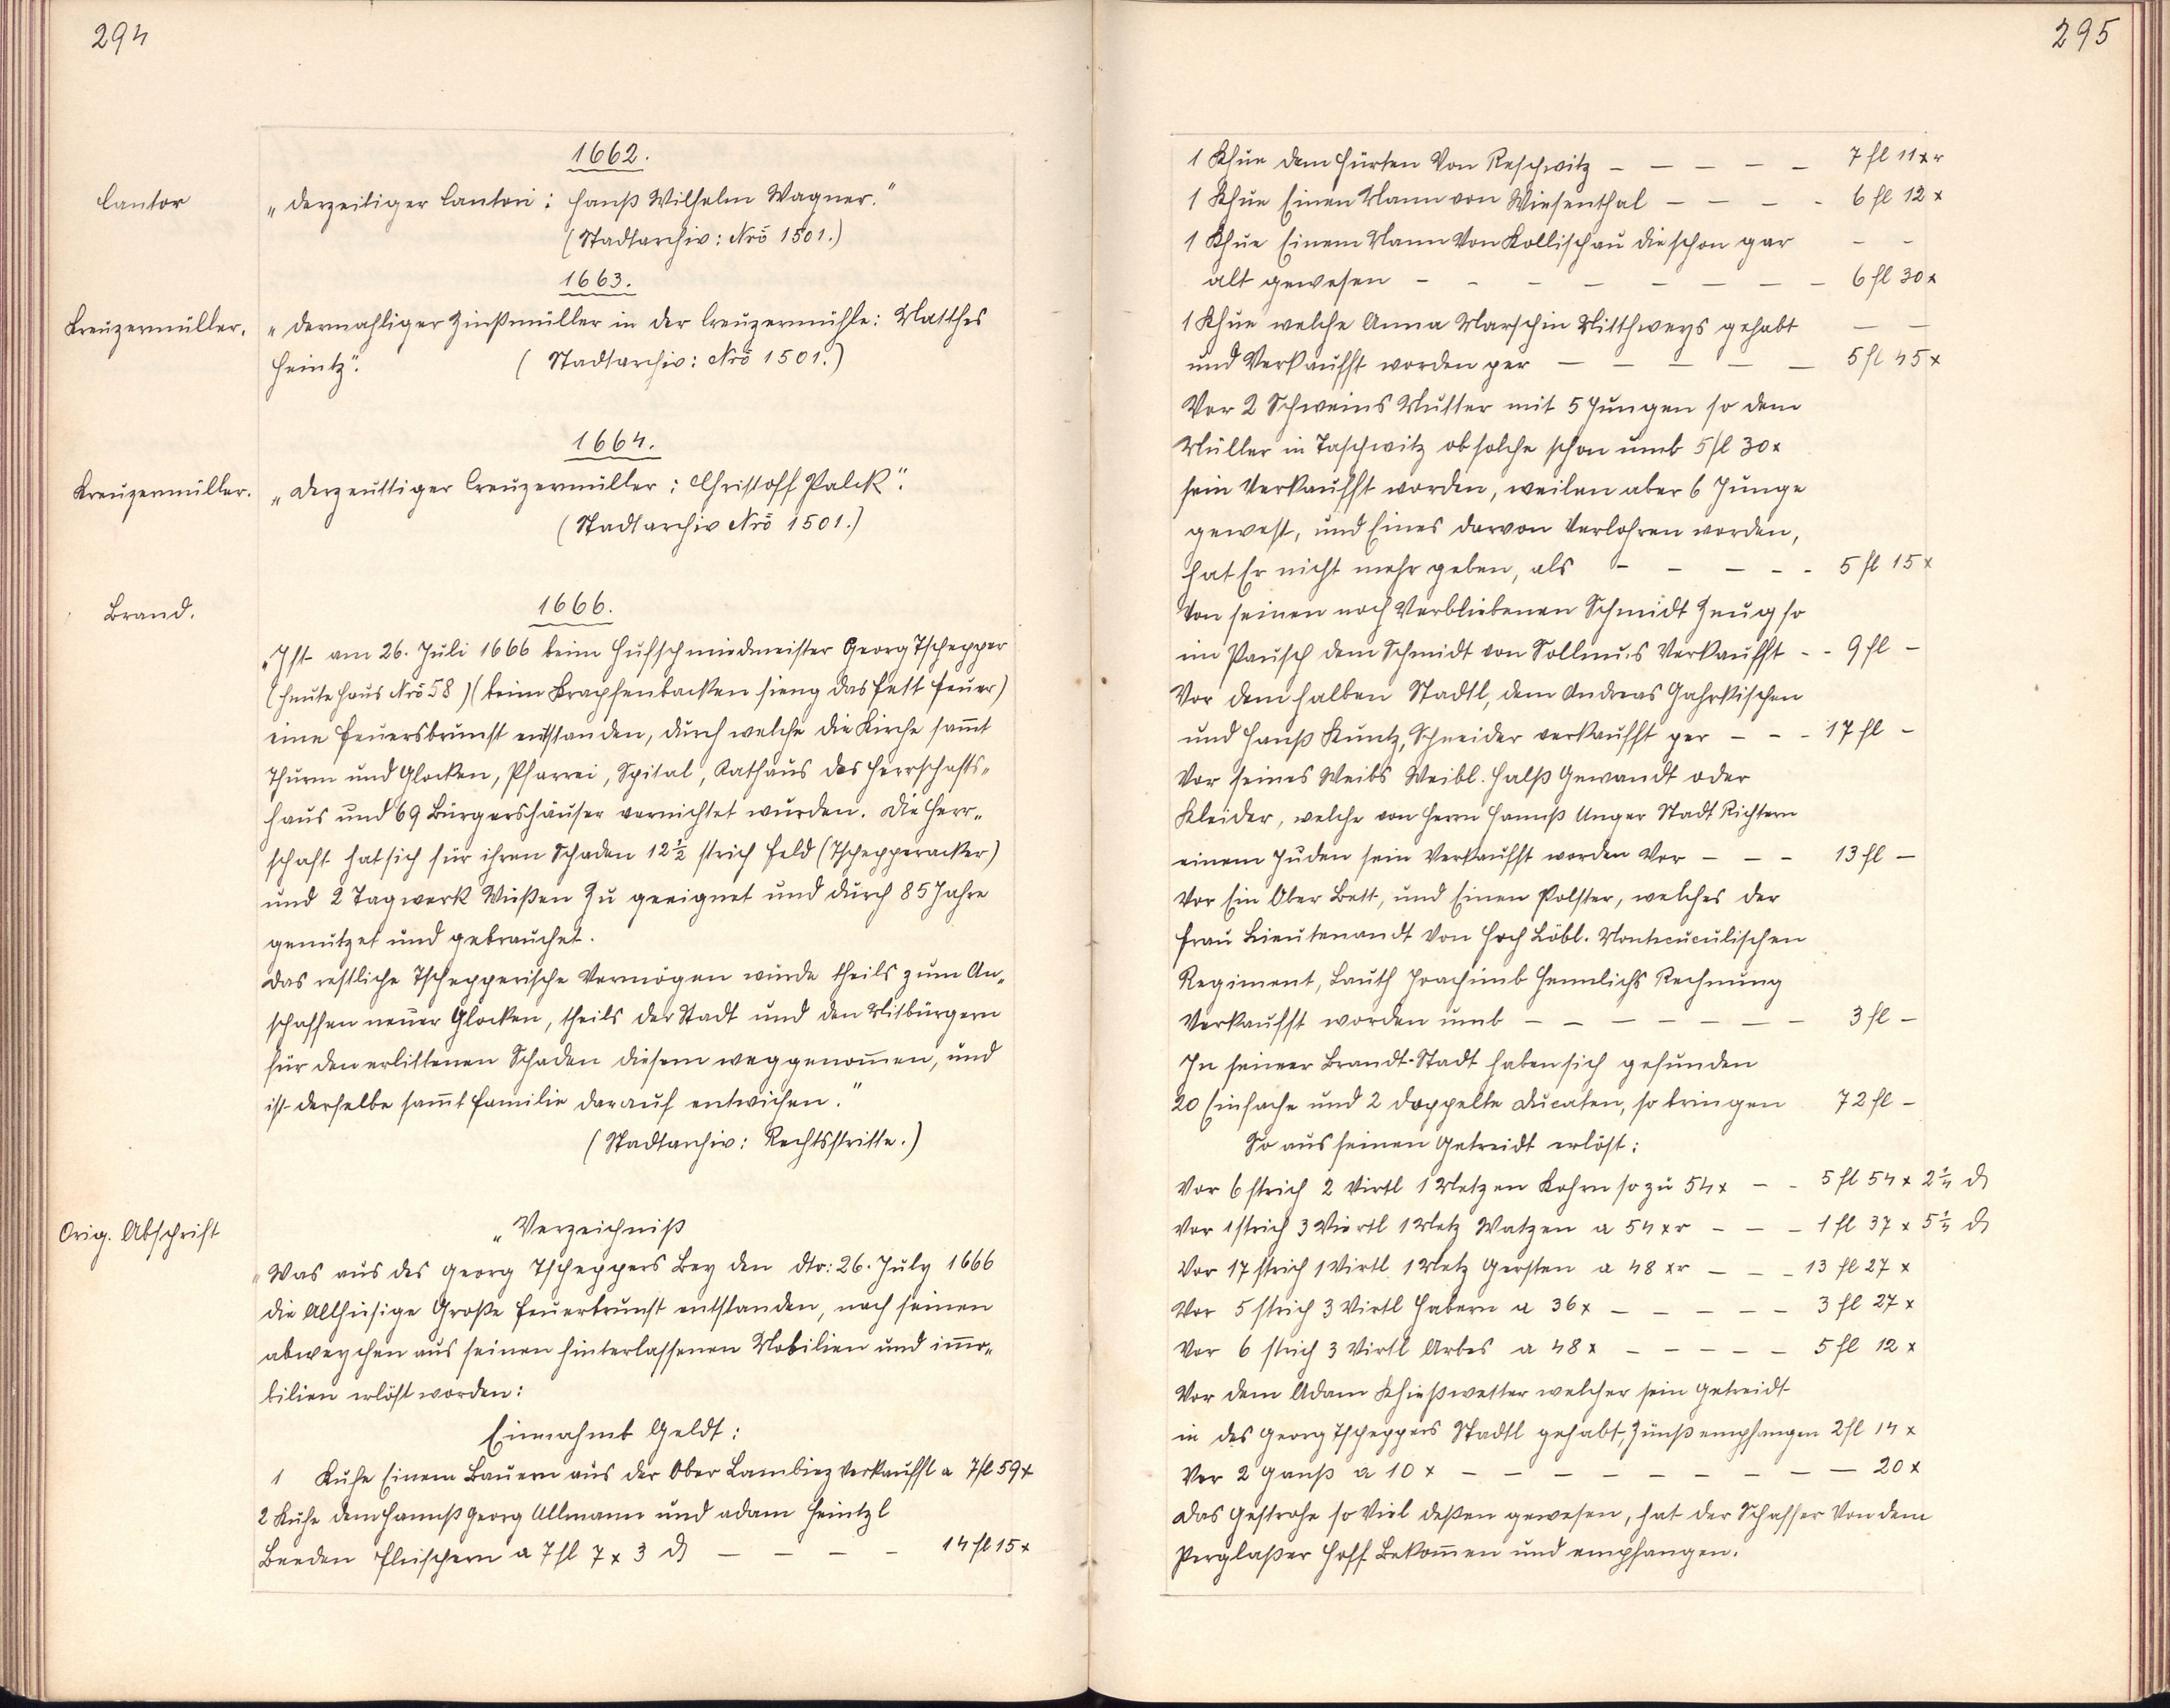 294
1662.
Cantor
„Derzeitiger Cantori: Hanß Wilhelm Wagner."
(Stadtarchiv: Nrō 1501.)
1663.
Kreuzermüller.
„Dermahliger Zinßmüller in der Creuzermühle: Matthes
Heintz". (Stadtarchiv: Nrō 1501.)
1664.
Kreuzermüller.
„Derzeuttiger Creuzermüller: Christoff Palck".
(Stadtarchiv Nrō 1501.)
Brand.
1666.
„Ist am 26. Juli 1666 beim Hufschmiedmeister Georg Tschepper
(heute Haus Nrō 58) (beim Krapfenbacken fieng das Fett Feuer)
eine Feuersbrunst entstanden, durch welche die Kirche sam̄t
Thurm und Glocken, Pfarrei, Spital, Rathaus das Herrschafts-
haus und 69 Bürgershäuser vernichtet wurden. Die Herr-
schaft hat sich für ihren Schaden 12½ Strich Feld (Tschepperacker)
und 2 Tagwerk Wießen zu geeignet und durch 85 Jahre
genutzet und gebrauchet.
Das restliche Tschepperische Vermögen wurde theils zum An-
schaffen neuer Glocken, theils der Stadt und den Mitbürgern
für den erlittenen Schaden diesem weggenom̄en, und
ist derselbe sam̄t Familie darauf entwichen."
(Stadtarchiv: Rechtsstritte.)
Orig. Abschrift
„Verzeichniß
„Was aus des Georg Tscheppers Bey den dto: 26. July 1666
die Allhiesige Große Feuerbrunst entstanden, nach seinen
abweychen aus seinen hinterlassenen Mobilien und im̄o-
bilien erlöst worden:
Einnahmb Geldt:
1 Kuhe Einem Bauern aus der Ober Lambiez verkaufft a 7 fl 59 x
2 Kuhe dem Hannß Georg Ullmann und Adam Heintzl
Beeden Fleischern a 7 fl 7 x 3 d — — — — 14 fl 15 x
295
1 Khue dem Hürten Von Reschwitz — — — — — 7 fl 11 xr
1 Khue Einen Mann von Wiesenthal — — — - 6 fl 12 x
1 Khue Einem Mann Von Kollischau die schon gar - -
alt gewesen - - - - - - - - 6 fl 30 x
1 Khue welche Anna Marschin Mitthweys gehabt — —
und Verkaufft worden per — — — — — 5 fl 45 x
Vor 2 Schweins Mutter mit 5 Jungen so dem
Müller in Taschwitz ob solche schon umb 5 fl 30 x
sein Verkaufft worden, weilen aber 6 Junge
gewest, und Eines darvon Verlohren worden,
hat Er nicht mehr geben, als - - - - - 5 fl 15 x
Von seinen noch Verbliebenen Schmidt Zeug so
im Pausch dem Schmidt von Sollmus Verkaufft - - 9 fl -
Vor dem halben Stadtl, dem Andreas Gahrkischen
und Hanß Kuntz, Schneider verkaufft per - - - 17 fl -
Vor seines Weibs Weibl. Halß Gewandt oder
Kleider, welche von Herrn Hannß Unger Stadt Richtern
einem Juden sein Verkaufft worden Vor — — — 13 fl —
Vor Ein Ober Bett, und Einen Polster, welches der
Frau Lieutenandt Von Hoch Löbl. Montecuculischen
Regiment, Lauth Joachimb Hennlichs Rechnung
Verkaufft worden umb — — — — — — — 3 fl —
In seiner Brandt-Stadt haben sich gefunden
20 Einfache und 2 doppelte Ducaten, so bringen 72 fl —
So aus seinen Getreidt erlöst:
Vor 6 Strich 2 Virtl 1 Metzen Kohrn so zu 54 x — - 5 fl 54 x 2¼ d
Vor 1 Strich 3 Viertl 1 Metz Watzen a 54 xr — — - 1 fl 37 x 5¼ d
Vor 17 Strich 1 Virtl 1 Metz Gersten a 48 xr — — - 13 fl 27 x
Vor 5 Strich 3 Virtl Habern a 36 x — — — — — 3 fl 27 x
Vor 6 Strich 3 Virtl Arbes a 48 x — — — — — 5 fl 12 x
Vor dem Adam Khießwetter welcher sein Getreidt
in des Georg Tscheppers Stadtl gehabt, Zünß empfangen 2 fl 14 x
Vor 2 Ganß a 10 x — — — — — — — — — 20 x
Das Gestrohe so Viel deßen gewesen, hat der Schaffer Von dem
Perglaßer Hoff Bekom̄en und empfangen.